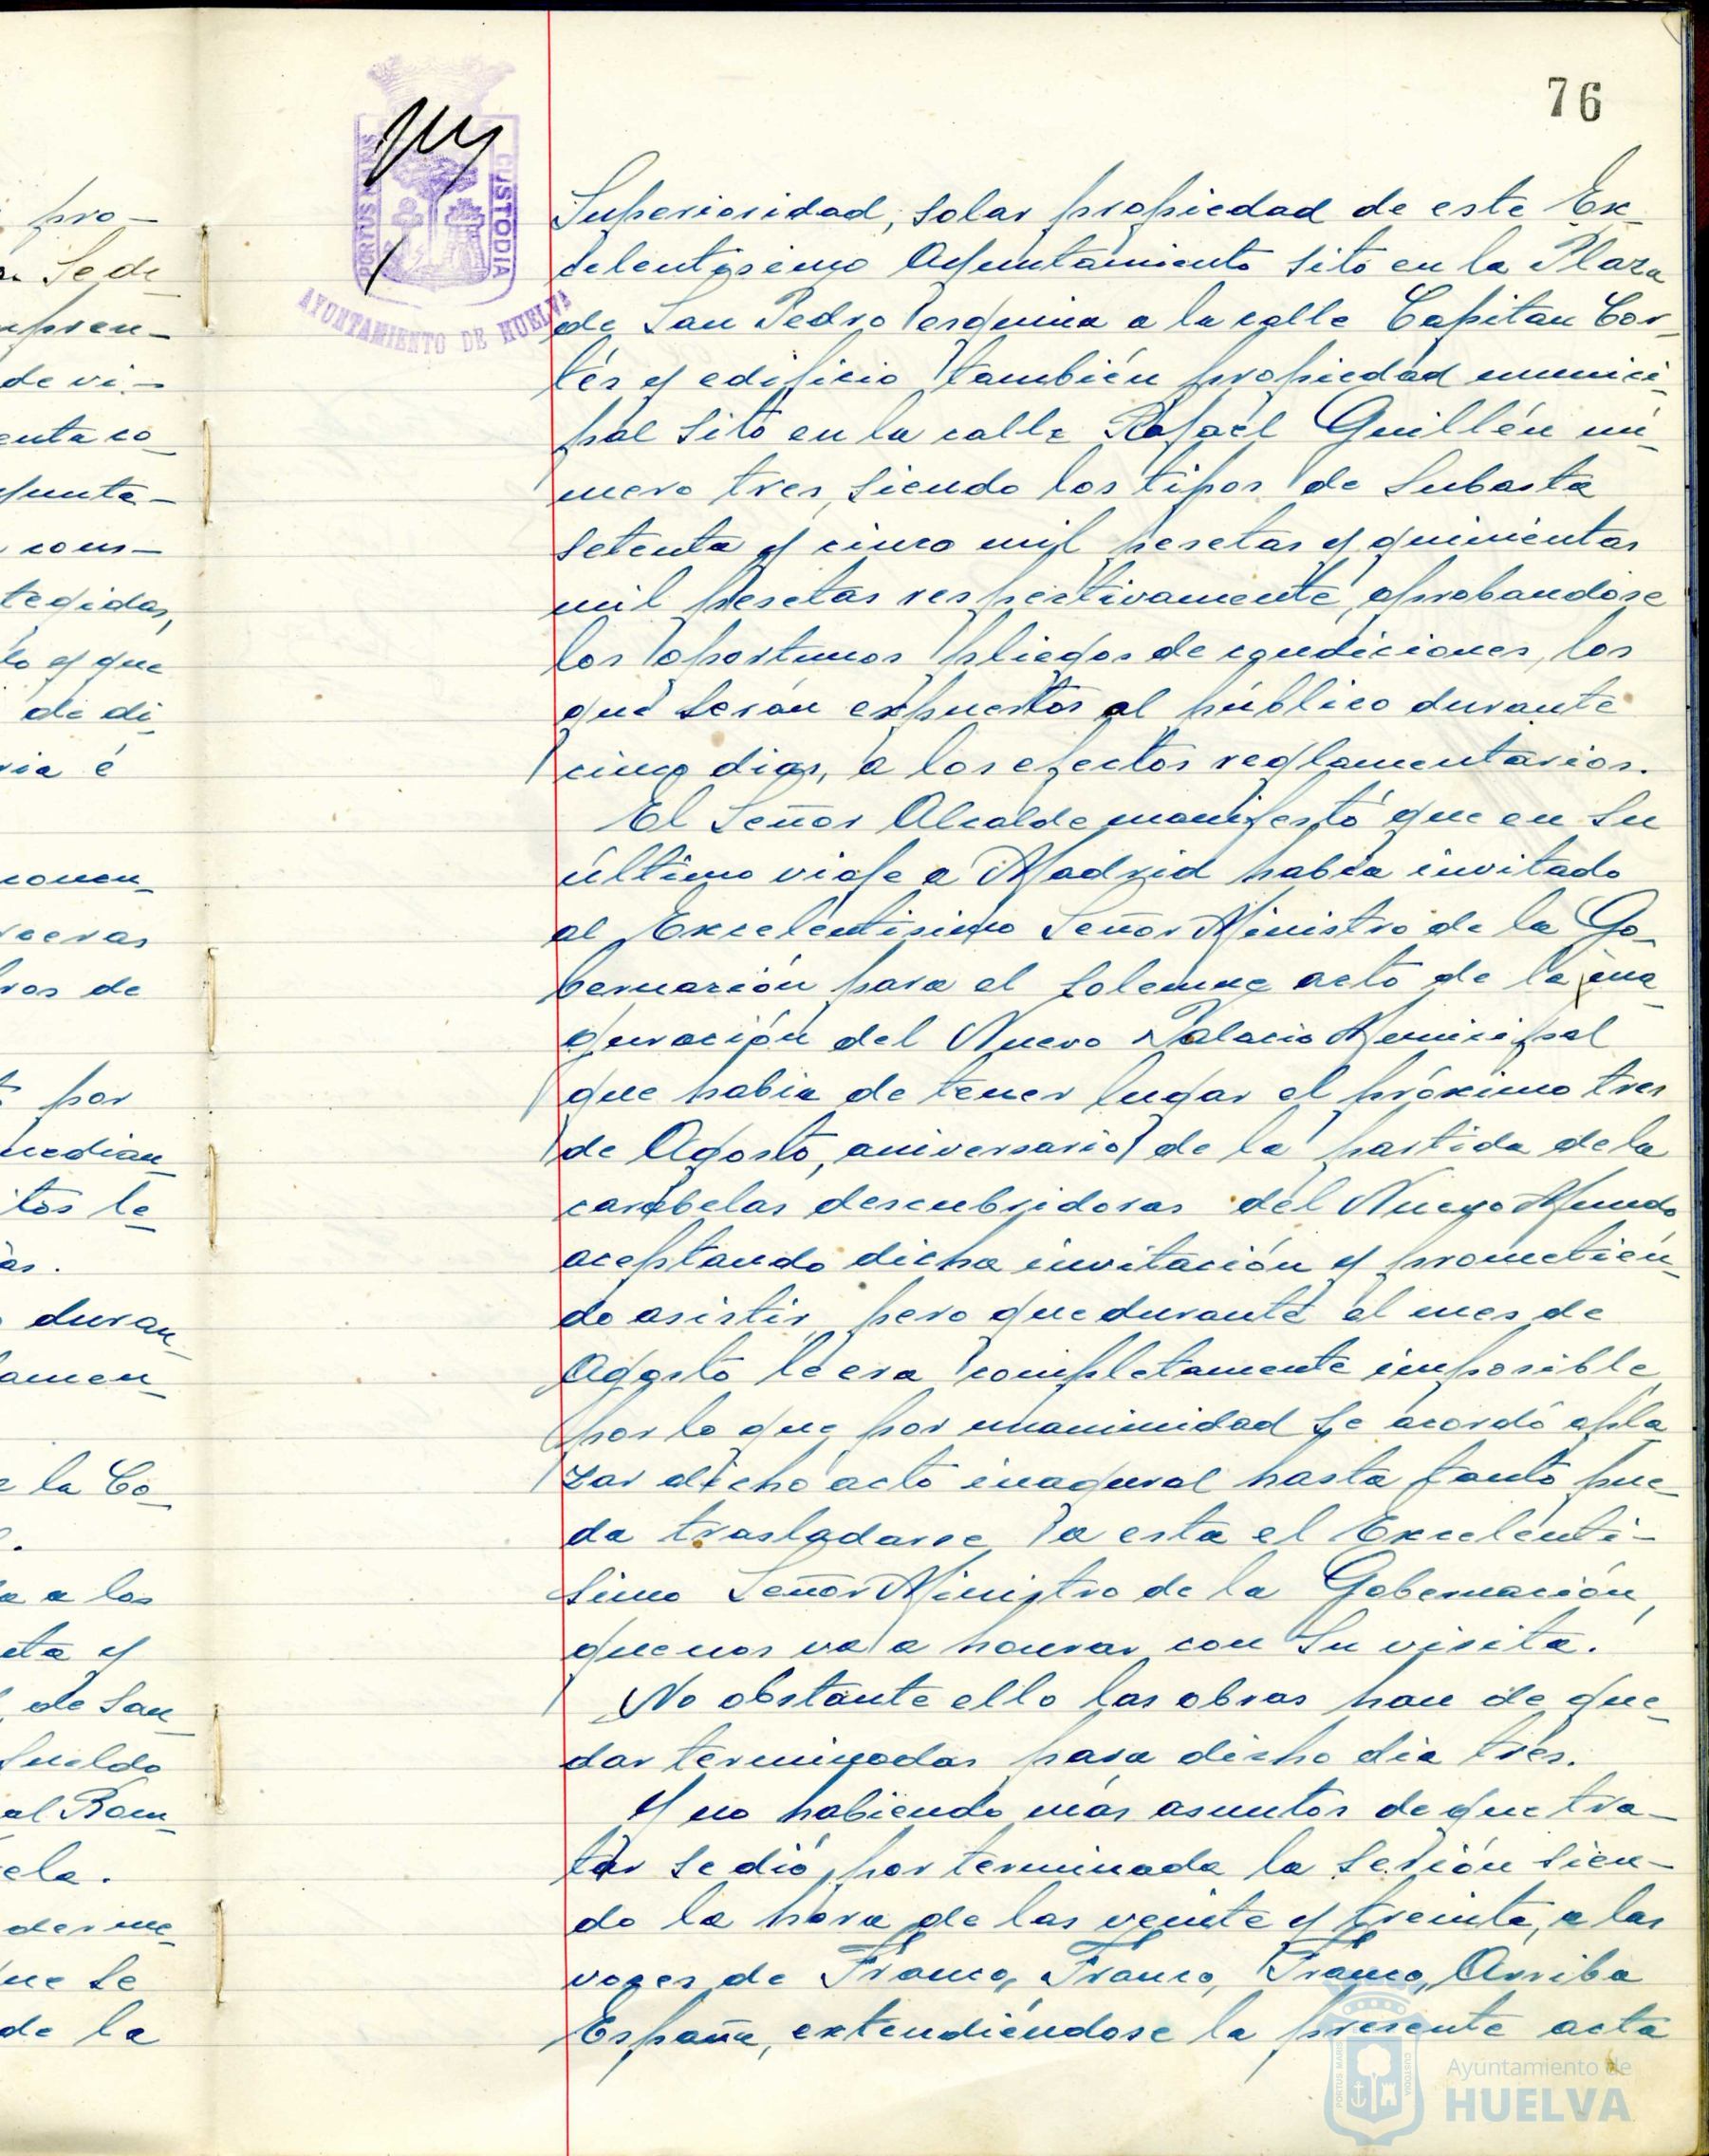 76
PORTUS MARIS
CUSTODIA
AYUNTAMIENTO DE HUELVA
pro-
Sede
apren-
de vi-
enta co-
yunta-
cons-
tegidas,
to y que
de di-
ria é
conen-
ros de
por
median-
tos le-
as.
duran-
lamen-
e la Co-
a a los
eta y
de San
sueldo
al Ram-
ela.
ue se
de la
Superioridad, solar propiedad de este Ex-
celentisimo Ayuntamiento sito en la Plaza
de San Pedro esquina a la calle Capitan Cor-
tés y edificio también propiedad munici-
pal sito en la calle Rafael Guillén nú-
mero tres, siendo los tipos de subasta
setenta y cinco mil pesetas y quinientas
mil pesetas respectivamente, aprobandose
los oportunos pliegos de condiciones, los
que serán expuestos al público durante
cinco dias, a los efectos reglamentarios.
El Señor Alcalde manifestó que en su
último viaje a Madrid habia invitado
al Excelentisimo Señor Ministro de la Go-
bernación para el solemne acto de la ina-
guración del Nuevo Palacio Municipal
que habia de tener lugar el próximo tres
de Agosto, aniversario de la partida de la
carabelas descubridoras del Nuevo Mundo
aceptando dicha invitación y prometien-
do asistir, pero que durante el mes de
Agosto le era completamente imposible,
por lo que por unanimidad se acordó apla-
zar dicho acto inagural hasta tanto pue-
da trasladarse a esta el Excelenti-
simo Señor Ministro de la Gobernación,
que nos va a honrar con su visita.
No obstante ello las obras han de que-
dar terminadas para dicho dia tres.
Y no habiendo más asuntos de que tra-
tar se dió por terminada la sesión sien-
do la hora de las veinte y treinta, a las
voces de Franco, Franco, Franco, Arriba
España, extendiéndose la presente acta
Ayuntamiento de
HUELVA